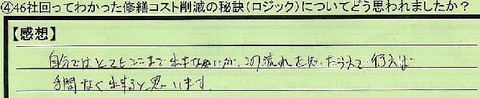 ④46社回ってわかった修繕コスト削減の秘訣(ロジック)についてどう思われましたか?
【感想】
自分ではとてもここまで出来ないが、この流れを知ったうえで行えば
手間なく出来ると思います。